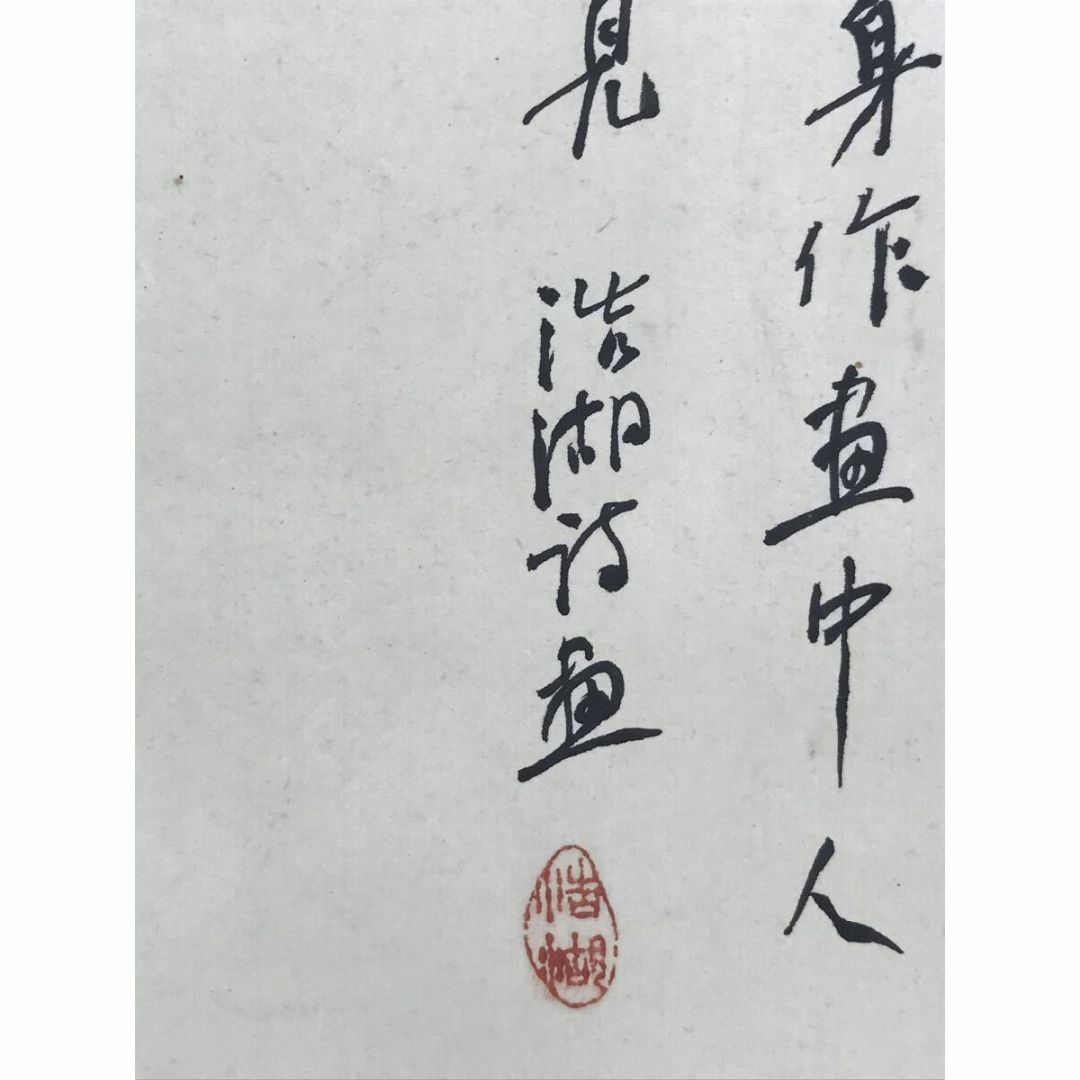 身作画中人
見 浩湖诗画
浩湖